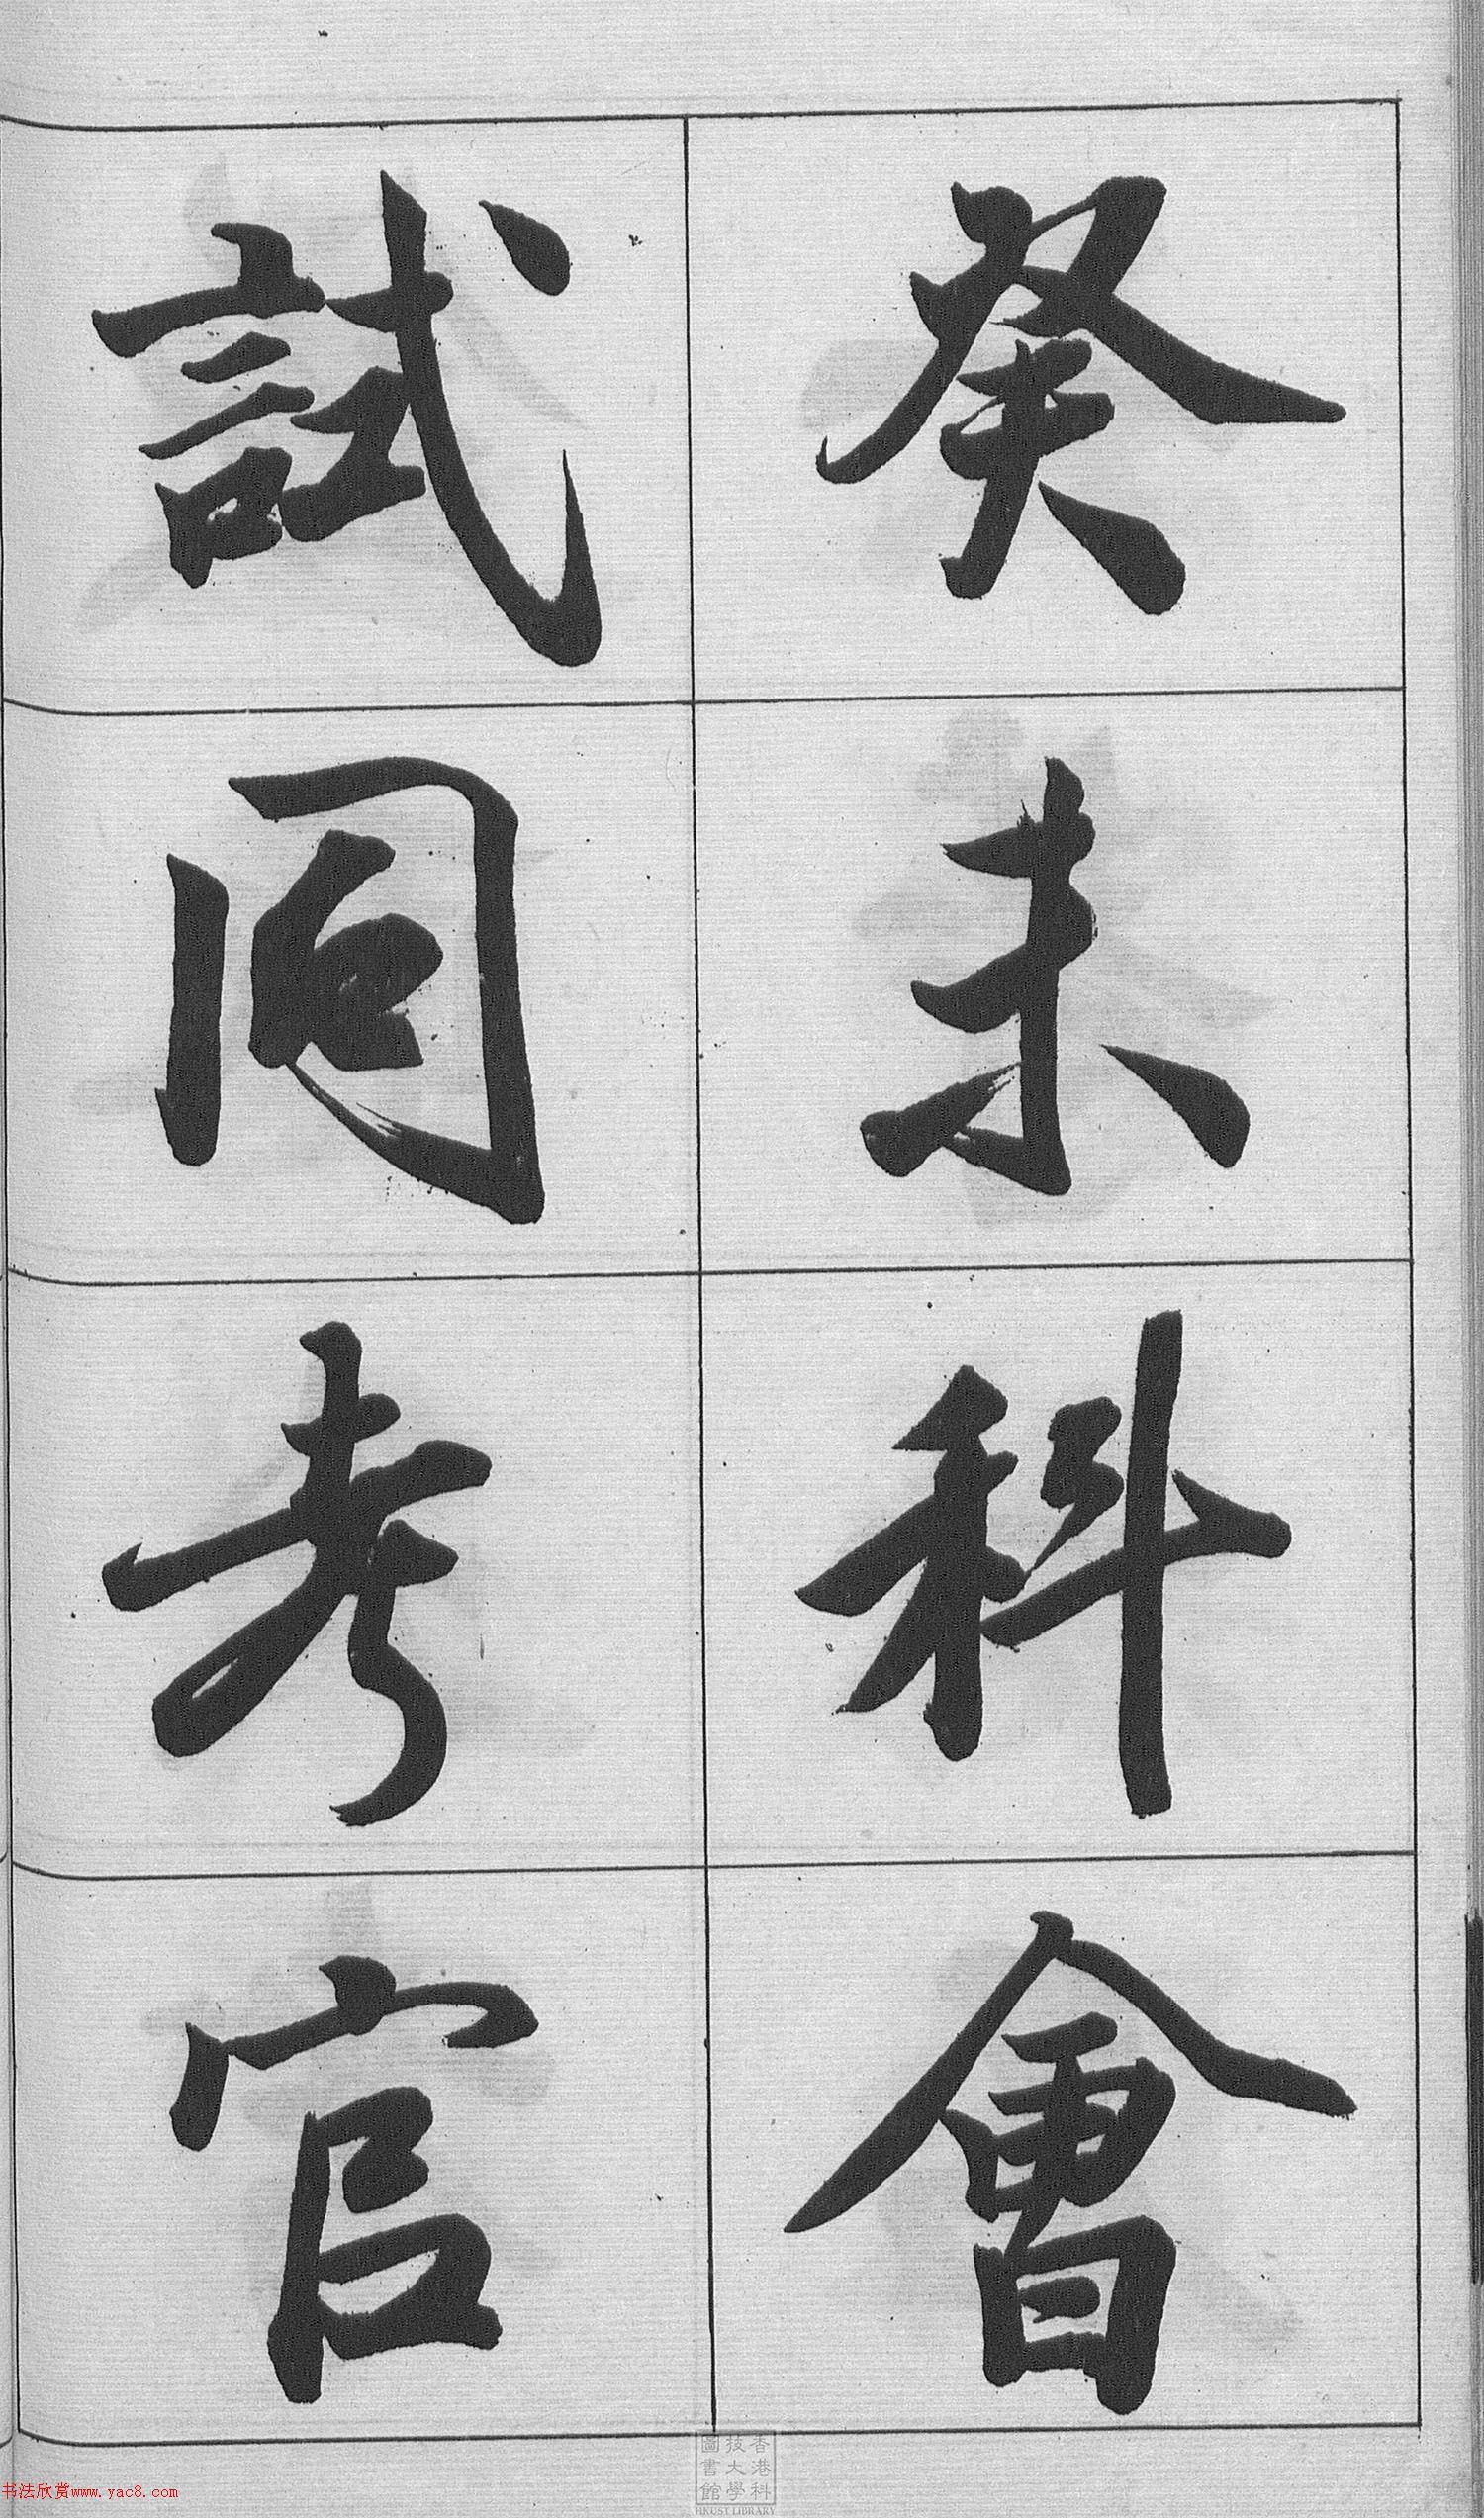 癸未科會
試同考官
香港
科技大學
圖書館
HKUST LIBRARY
书法欣赏www.yac8.com